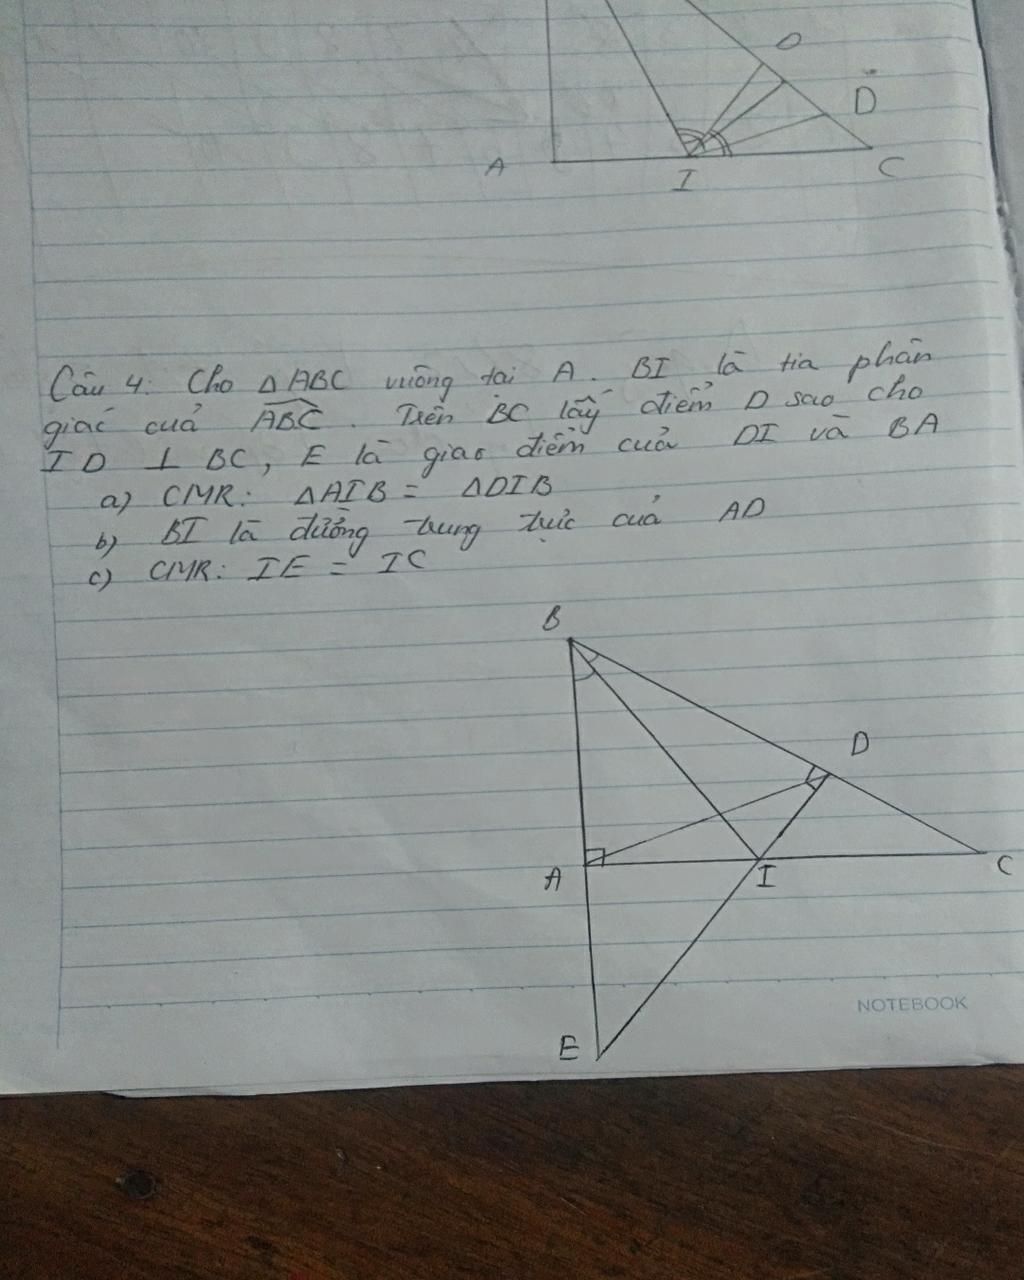 D
D
A
I
C
Câu 4: Cho ΔABC vuông tại A. BI là tia phân
giác của ABC. Trên BC lấy điểm D sao cho
ID ⊥ BC, E là giao điểm của DI và BA
a) CMR: ΔAIB = ΔDIB
b) BI là đường trung trực của AD
c) CMR: IE = IC
B
D
A
I
C
E
NOTEBOOK